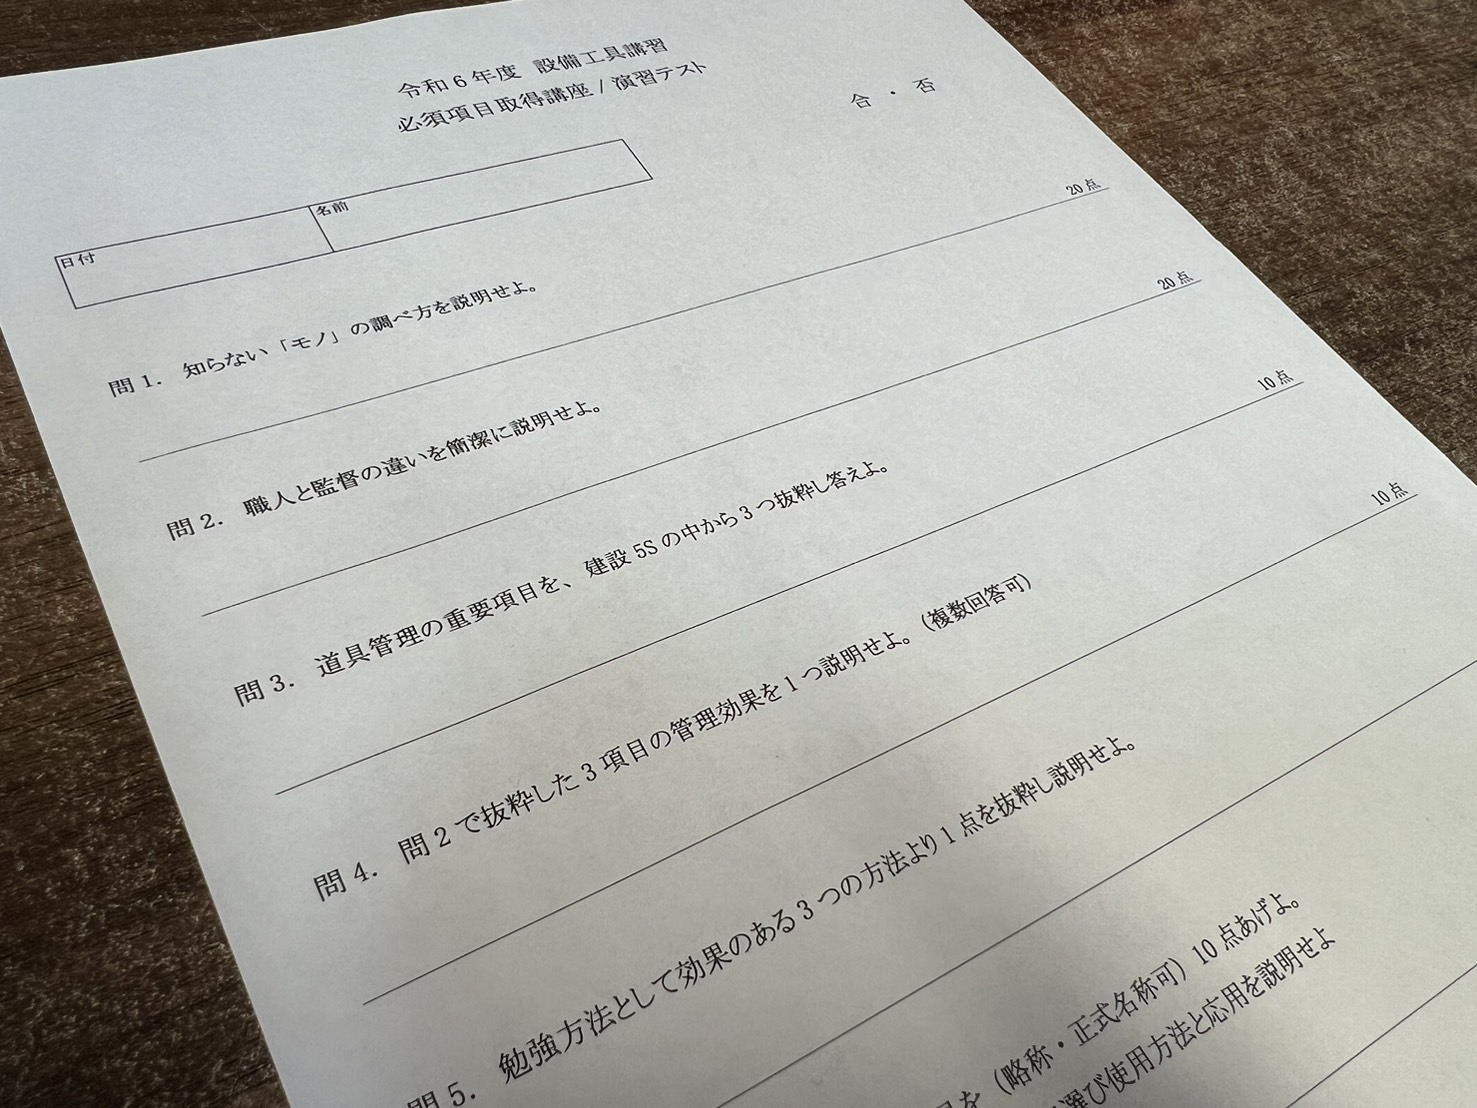 令和6年度 設備工具講習
必須項目取得講座 / 演習テスト
合 ・ 否
日付
名前
問1. 知らない「モノ」の調べ方を説明せよ。
20点
問2. 職人と監督の違いを簡潔に説明せよ。
20点
問3. 道具管理の重要項目を、建設5Sの中から3つ抜粋し答えよ。
10点
問4. 問2で抜粋した3項目の管理効果を1つ説明せよ。(複数回答可)
10点
問5. 勉強方法として効果のある3つの方法より1点を抜粋し説明せよ。
を(略称・正式名称可)10点あげよ。
選び使用方法と応用を説明せよ